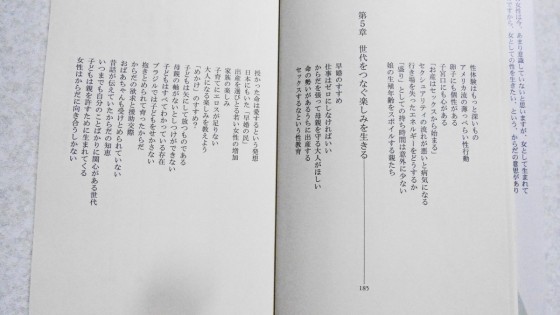 女性は今、あまり意識していないと思いますが、女として生まれて
ですから、女としての性を生きたい、という、からだの意思があり
性体験はもっと深いもの
アメリカ流の薄っぺらい性行動
卵子にも個性がある
子宮口にも心がある
「お産はセックスから始まる」
セクシュアリティの流れが悪いと病気になる
行き場を失ったエネルギーをどうするか
「盛り」としての持ち時間は意外に少ない
娘の生殖年齢をスポイルする親たち
第5章 世代をつなぐ楽しみを生きる 185
早婚のすすめ
仕事はゼロにしなければいい
からだを張って母親を守る大人がほしい
命の勢いがあるうちに出産する
セックスするなという性教育
授かった命は愛するという発想
日本にもいた「早婚の民」
出産を選びとる若い女性の増加
家族の楽しみ
子育てにエロスが足りない
大人になる楽しみを教えよう
「めかけ」のすすめ?
子どもは矢にして放つものである
母親の軸がないとしつけができない
子どもはすべてわかっている存在
ブラジル人は子どもをせかさない
抱きとめられて育ったからだ
からだの欲求と援助交際
おばあちゃんも受けとめられていない
昔話が伝えていたからだの知恵
いつまでも自分のことばかりに関心がある世代
子どもは親を許すために生まれてくる
女性はからだに向き合うしかない